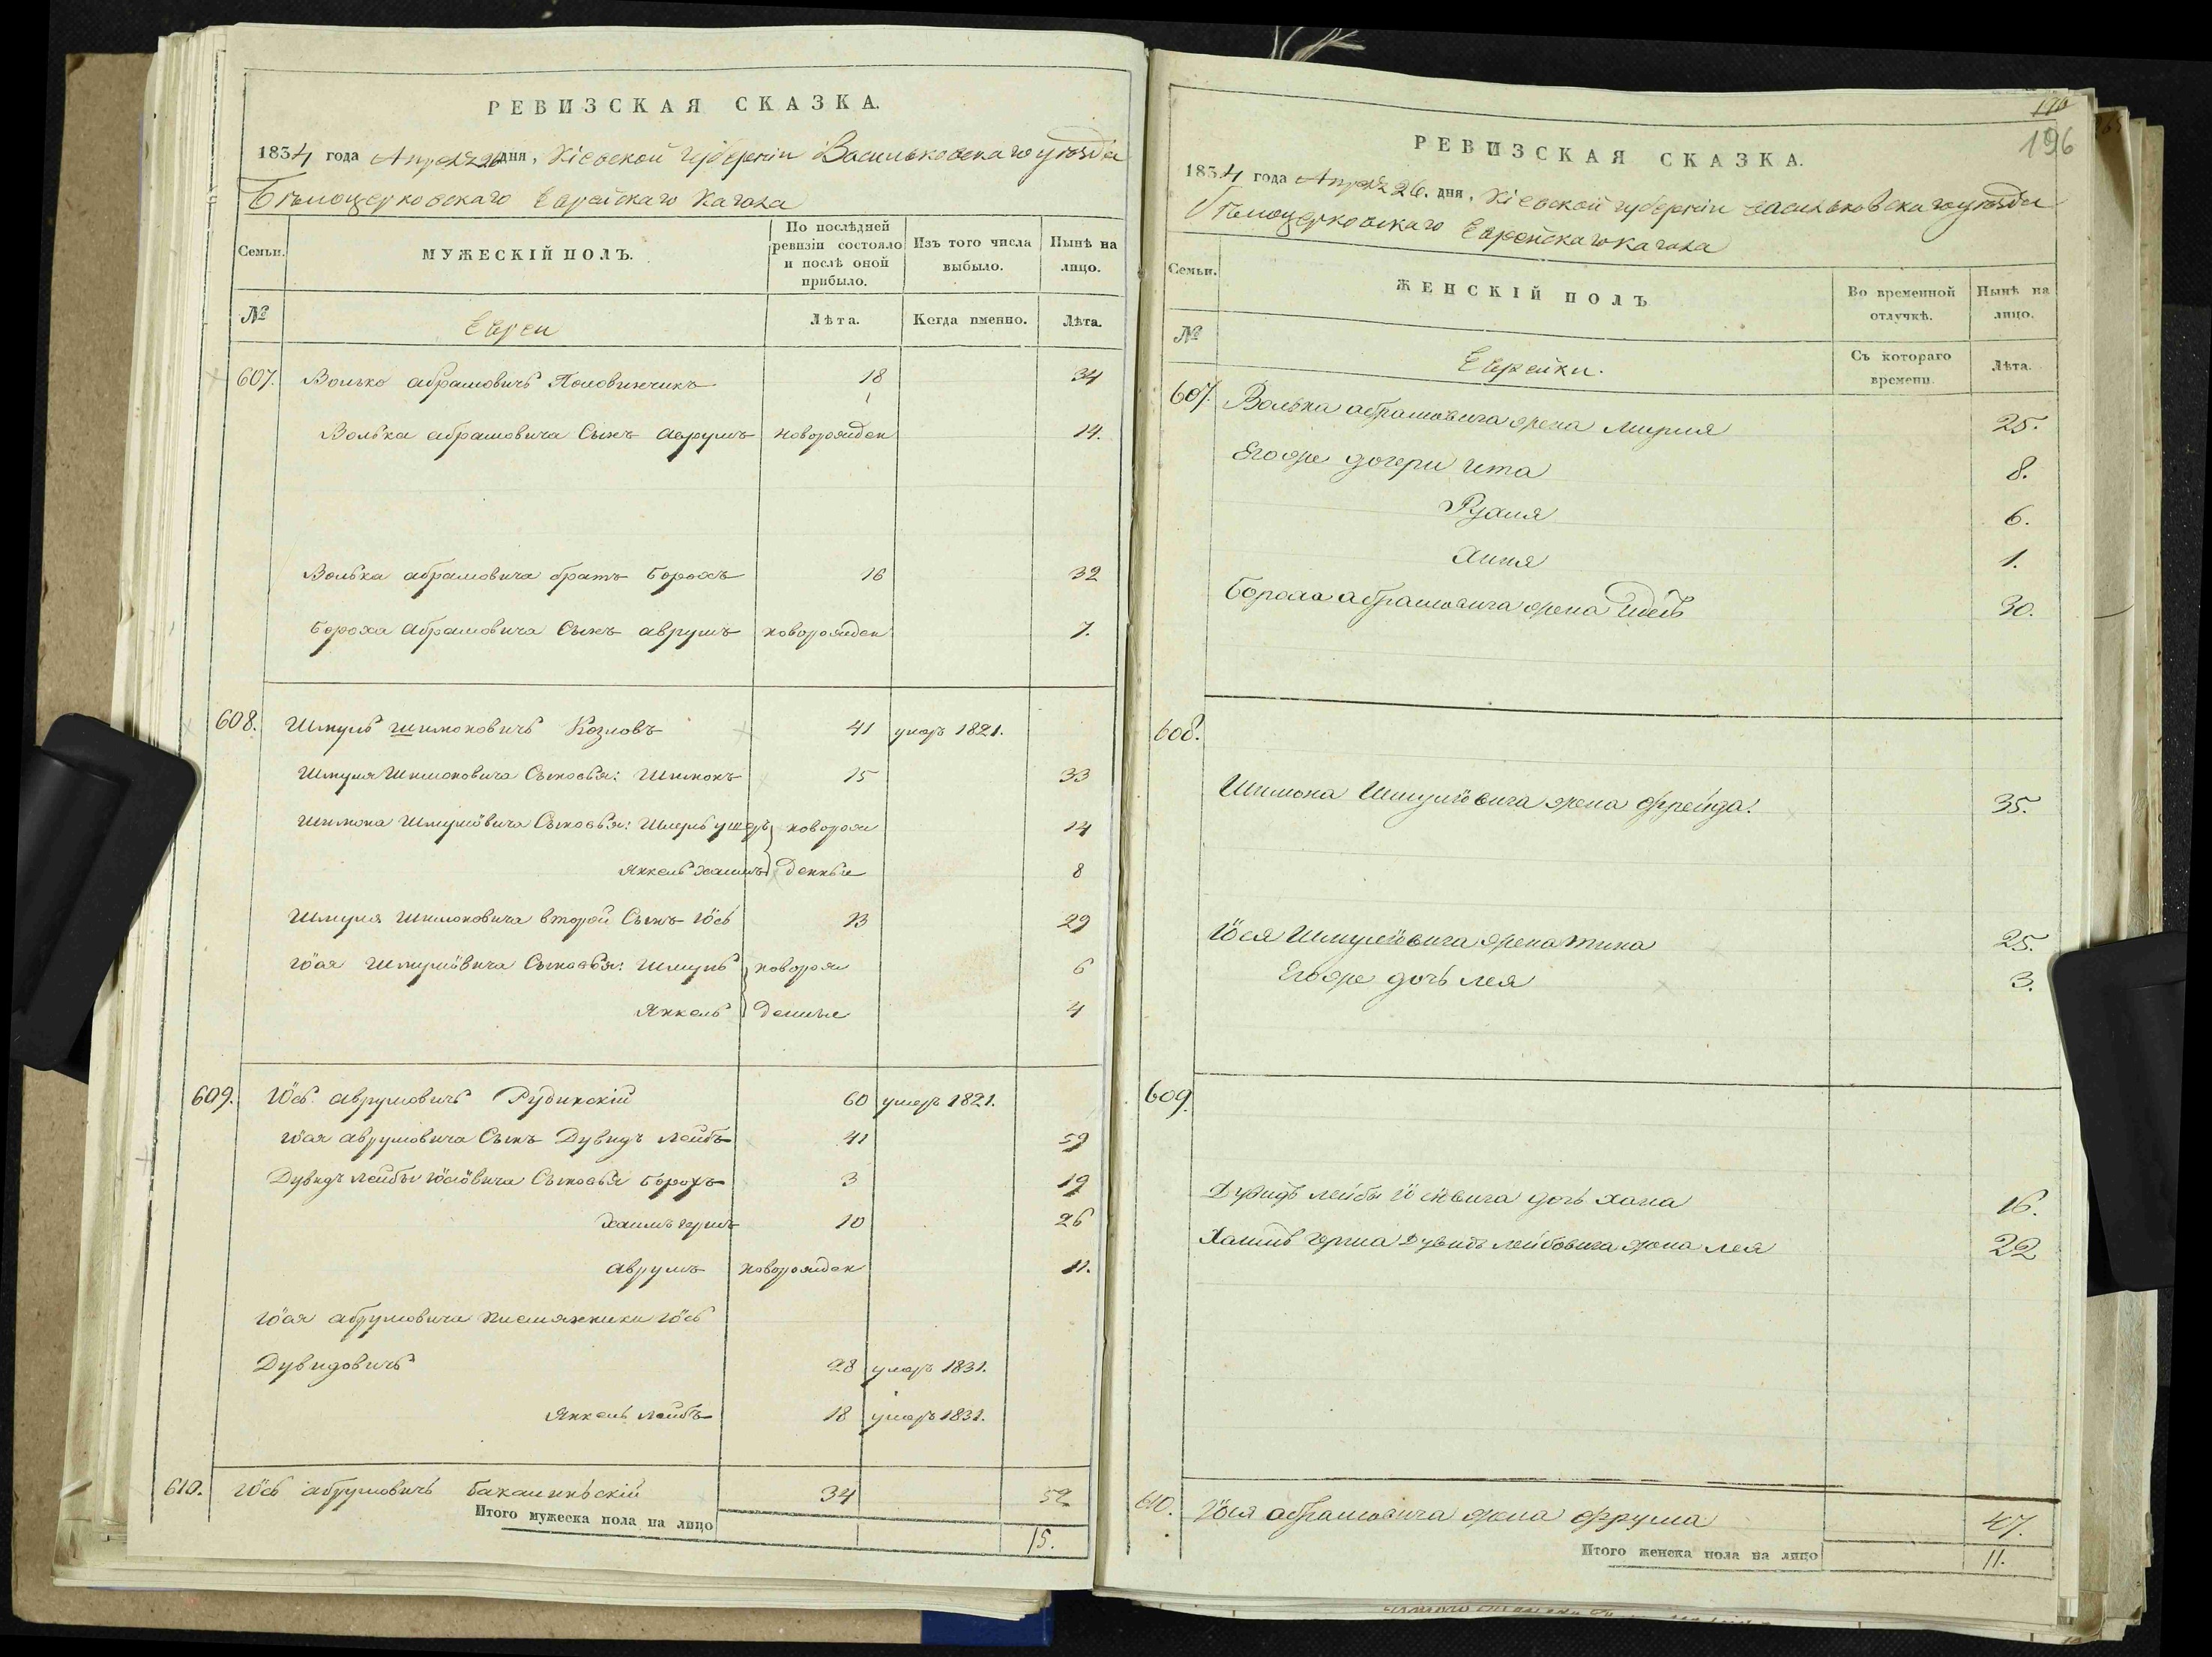 РЕВИЗСКАЯ СКАЗКА.
1834 года Апреля 26 дня, Кіевской губерніи Васильковскаго уѣзда
Бѣлоцерковскаго Еврейскаго Кагала
Семьи. МУЖЕСКІЙ ПОЛЪ. По послѣдней ревизіи состояло и послѣ оной прибыло. Изъ того числа выбыло. Нынѣ на лицо.
№ Евреи Лѣта. Когда именно. Лѣта.
607. Волько абрамовичъ Половинчикъ 18 34
Волька абрамовича Сынъ Аврумъ новорожден 14.
Волька абрамовича братъ Борохъ 16 32
Бороха Абрамовича Сынъ аврумъ новорожден 7.
608. Шмуль Шимоновичъ Козловъ 41 умеръ 1821.
Шмуля Шимоновича Сыновья: Шимонъ 15 33
Шимона Шмулёвича Сыновья: Шмуль ушеръ новорож 14
Янкель хаимъ денные 8
Шмуля Шимоновича второй Сынъ Іось 13 29
Іося Шмулёвича Сыновья: Шмуль новорож 6
Янкель денные 4
609. Іось аврумовичъ Рудинскій 60 умеръ 1821.
Іося аврумовича Сынъ Дувидъ Лейбъ 41 59
Дувидъ Лейбы Іосіовича Сыновья Борохъ 3 19
Хаимъ гершъ 10 26
аврумъ новорожден 11.
Іося абрумовича племянники Іось
Дувидовичъ 28 умеръ 1831.
Янкель Лейбъ 18 умеръ 1831.
610. Іось абрумовичъ 34 52
Итого мужеска пола на лицо 15.
196
РЕВИЗСКАЯ СКАЗКА.
1834 года Апреля 26. дня, Кіевской губерніи Васильковскаго уѣзда
Бѣлоцерковскаго Еврейскаго Кагала
Семьи. ЖЕНСКІЙ ПОЛЪ Во временной отлучкѣ. Нынѣ на лицо.
№ Еврейки. Съ котораго времени. Лѣта.
607. Волька абрамовича жена Мирля 25.
Егоже дочери Ита 8.
Рухля 6.
Хиня 1.
Бороха абрамовича жена 30.
608.
Шимона Шмулёвича жена Фрейда. 35.
Іося Шмулёвича жена Тина 25.
Егоже дочь Лея 3.
609.
Дувидъ Лейбы Іосіовича дочь Хана 16.
Хаимъ Герша Дувидъ Лейбовича жена Лея 22
610. Іося абрамовича жена Фрума 47.
Итого женска пола на лицо 11.